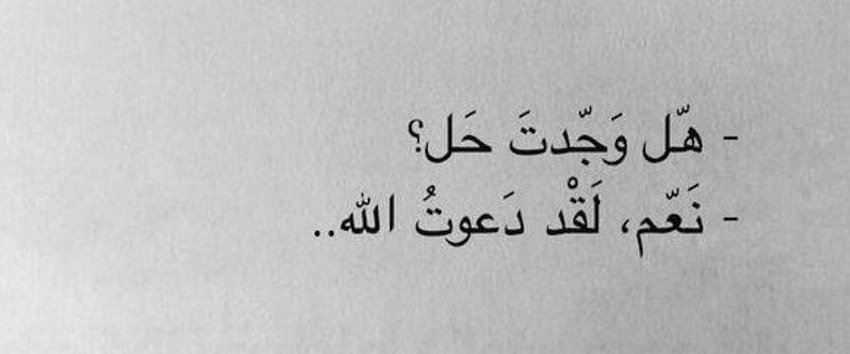 - هّل وَجّدتَ حَل؟
- نَعّم، لَقْد دَعوتُ الله..